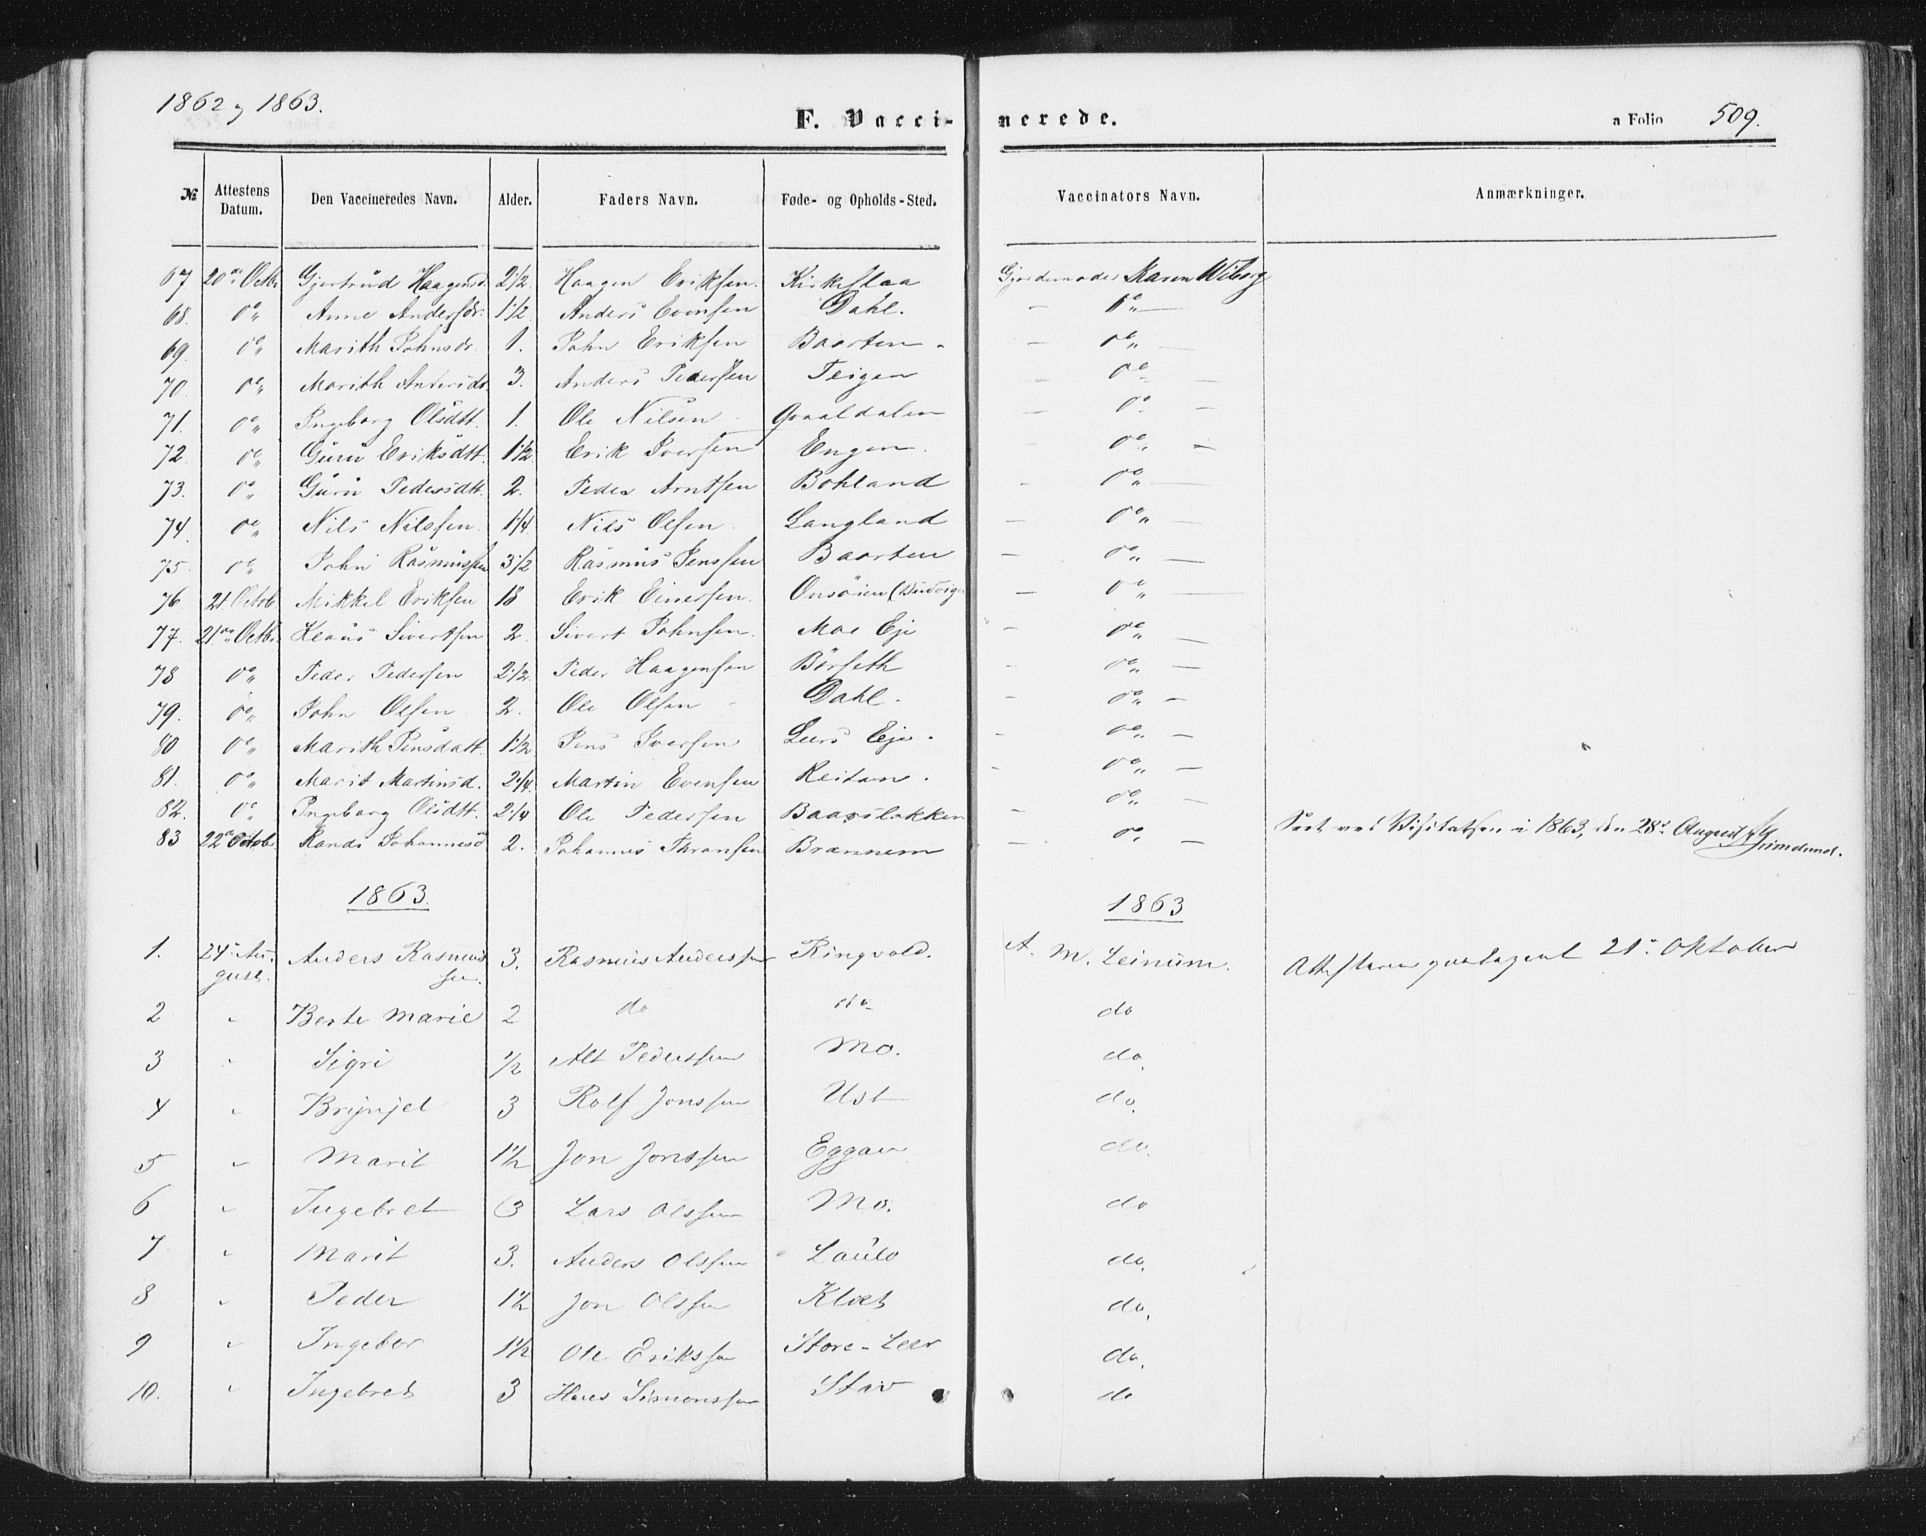 1862 og 1863.
F. Vacci- nerede.
a Folio 509.
№ Attestens Datum. Den Vaccineredes Navn. Alder. Faders Navn. Føde- og Opholds-Sted. Vaccinators Navn. Anmærkninger.
67 20de Octbr Gjertrud Haagensd. 2 1/2 Haagen Eriksen. Kirkeflaa Gjordemoder Karen Wiborg
68. do „ Anne Andersdr. 1 1/2 Anders Evensen Dahl. — do —
69. do „ Marith Johnsdr. 1. John Eriksen Baarten — do „ —
70. do „ Marith Andersdr 3. Anders Pedersen Teigen — do —
71. do „ Ingeborg Olsdtt. 1. Ole Nilsen Gaaldalen — do —
72. do „ Guru Eriksdtt. 1 1/2 Erik Iversen Engen. do „ —
73. do „ Guru Pedersdtt. 2. Peder Arntsen Bohland — do „ —
74. do „ Nils Nilsen. 1/4 Nils Olsen Langland — do „ —
75. do „ John Rasmussen 3 1/2 Rasmus Jenssen Baarten — do „ —
76. 21 Octob Mikkel Eriksen 18 Erik Einersen. Onsöien — do „ —
77. 21de Octbr Klaus Sivertsen 2. Sivert Johnsen. Moe Eje — do „ —
78 do „ Peder Pedersen 2 1/2 Peder Haagensen Börseth do „ —
79. do „ John Olsen 2. Ole Olsen Dahl. — do „ —
80 do „ Marith Jensdatt. 1 1/2 Jens Iversen Leers Eje. — do „ —
81. do „ Marit Martinsd. 2 1/4 Martin Evensen Reitan. — do „ —
82. do Ingeborg Olsdtt. 2 1/4 Ole Pedersen Baarslokken — do „ —
83 22de Octob Randi Johannesd 2. Johannes Thransen Brannem — do —
Seet ved Visitatsen i 1863, den 28de August
1863. 1863
1. 24de August. Anders Rasmussen. 3. Rasmus Anderssen Ringvold. A. M. Leinum. Attesterne modtaget 21de Oktober
2 „ Berte Marie 2 do do do
3 „ Sigri 1/2 Alt Pederssen Mo. do.
4 „ Brynjel 3 Rolf Jonssen Ust do.
5 „ Marit 1 1/2 Jon Jonssen Eggan do.
6 „ Ingebret 3 Lars Olssen Mo. do
7 „ Marit 3. Anders Olssen Laulo do.
8 „ Peder 1 1/2 Jon Olssen Klæt do.
9 „ Ingebor 1 1/2 Ole Erikssen Store-Leer do.
10. „ Ingebret 3 Hans Simonssen Stav do